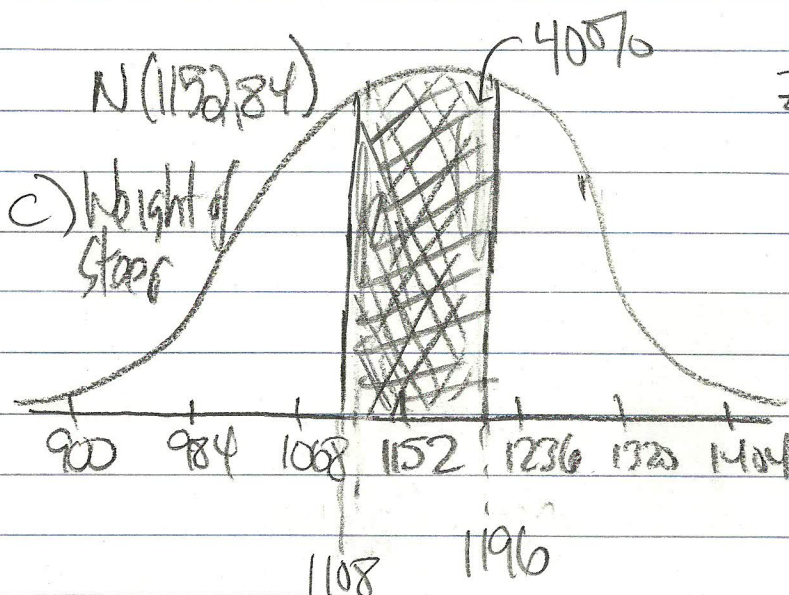 40%
N(1152,84)
C) Weight of
Steer
900 984 1068 1152 1236 1320 1404
1108 1196